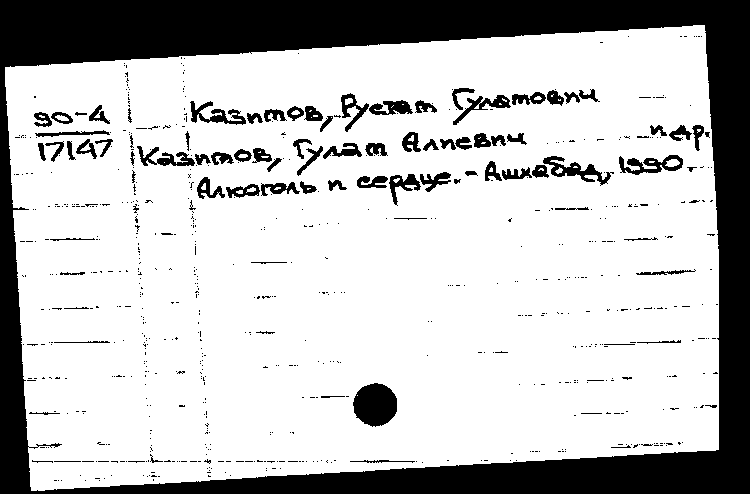 90-4 Казимов, Рустам Гуламович
17147 Казимов, Гулам Алиевич и др.
Алкоголь и сердце. - Ашхабад, 1990.